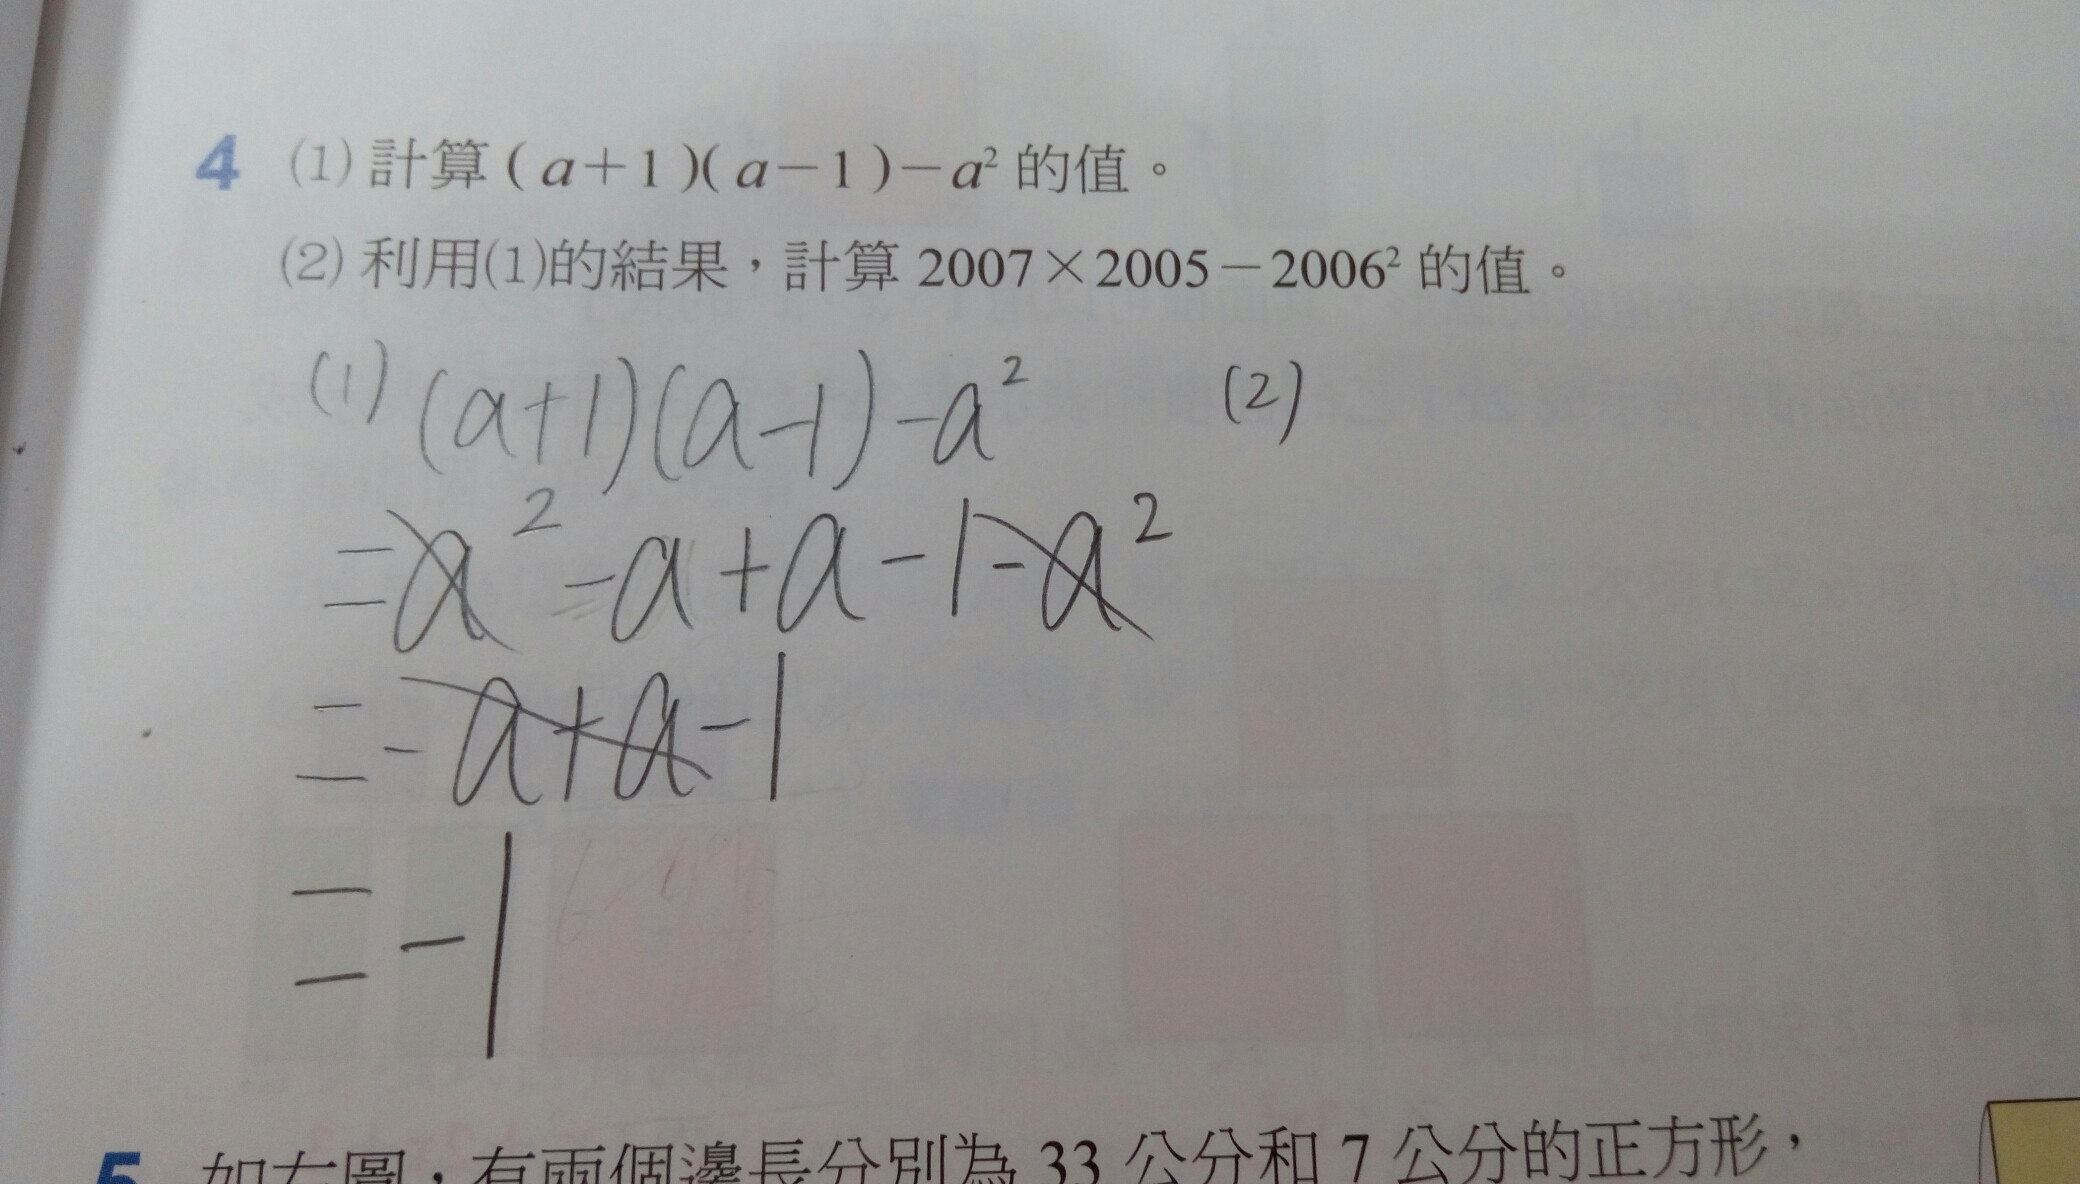 4 (1) 計算 ( a+1 )( a-1 )-a² 的值。
(2) 利用(1)的結果，計算 2007×2005-2006² 的值。
(1) (a+1)(a-1)-a²
(2)
=a²-a+a-1-a²
=-a+a-1
=-1
5 如右圖，有兩個邊長分別為 33 公分和 7 公分的正方形，